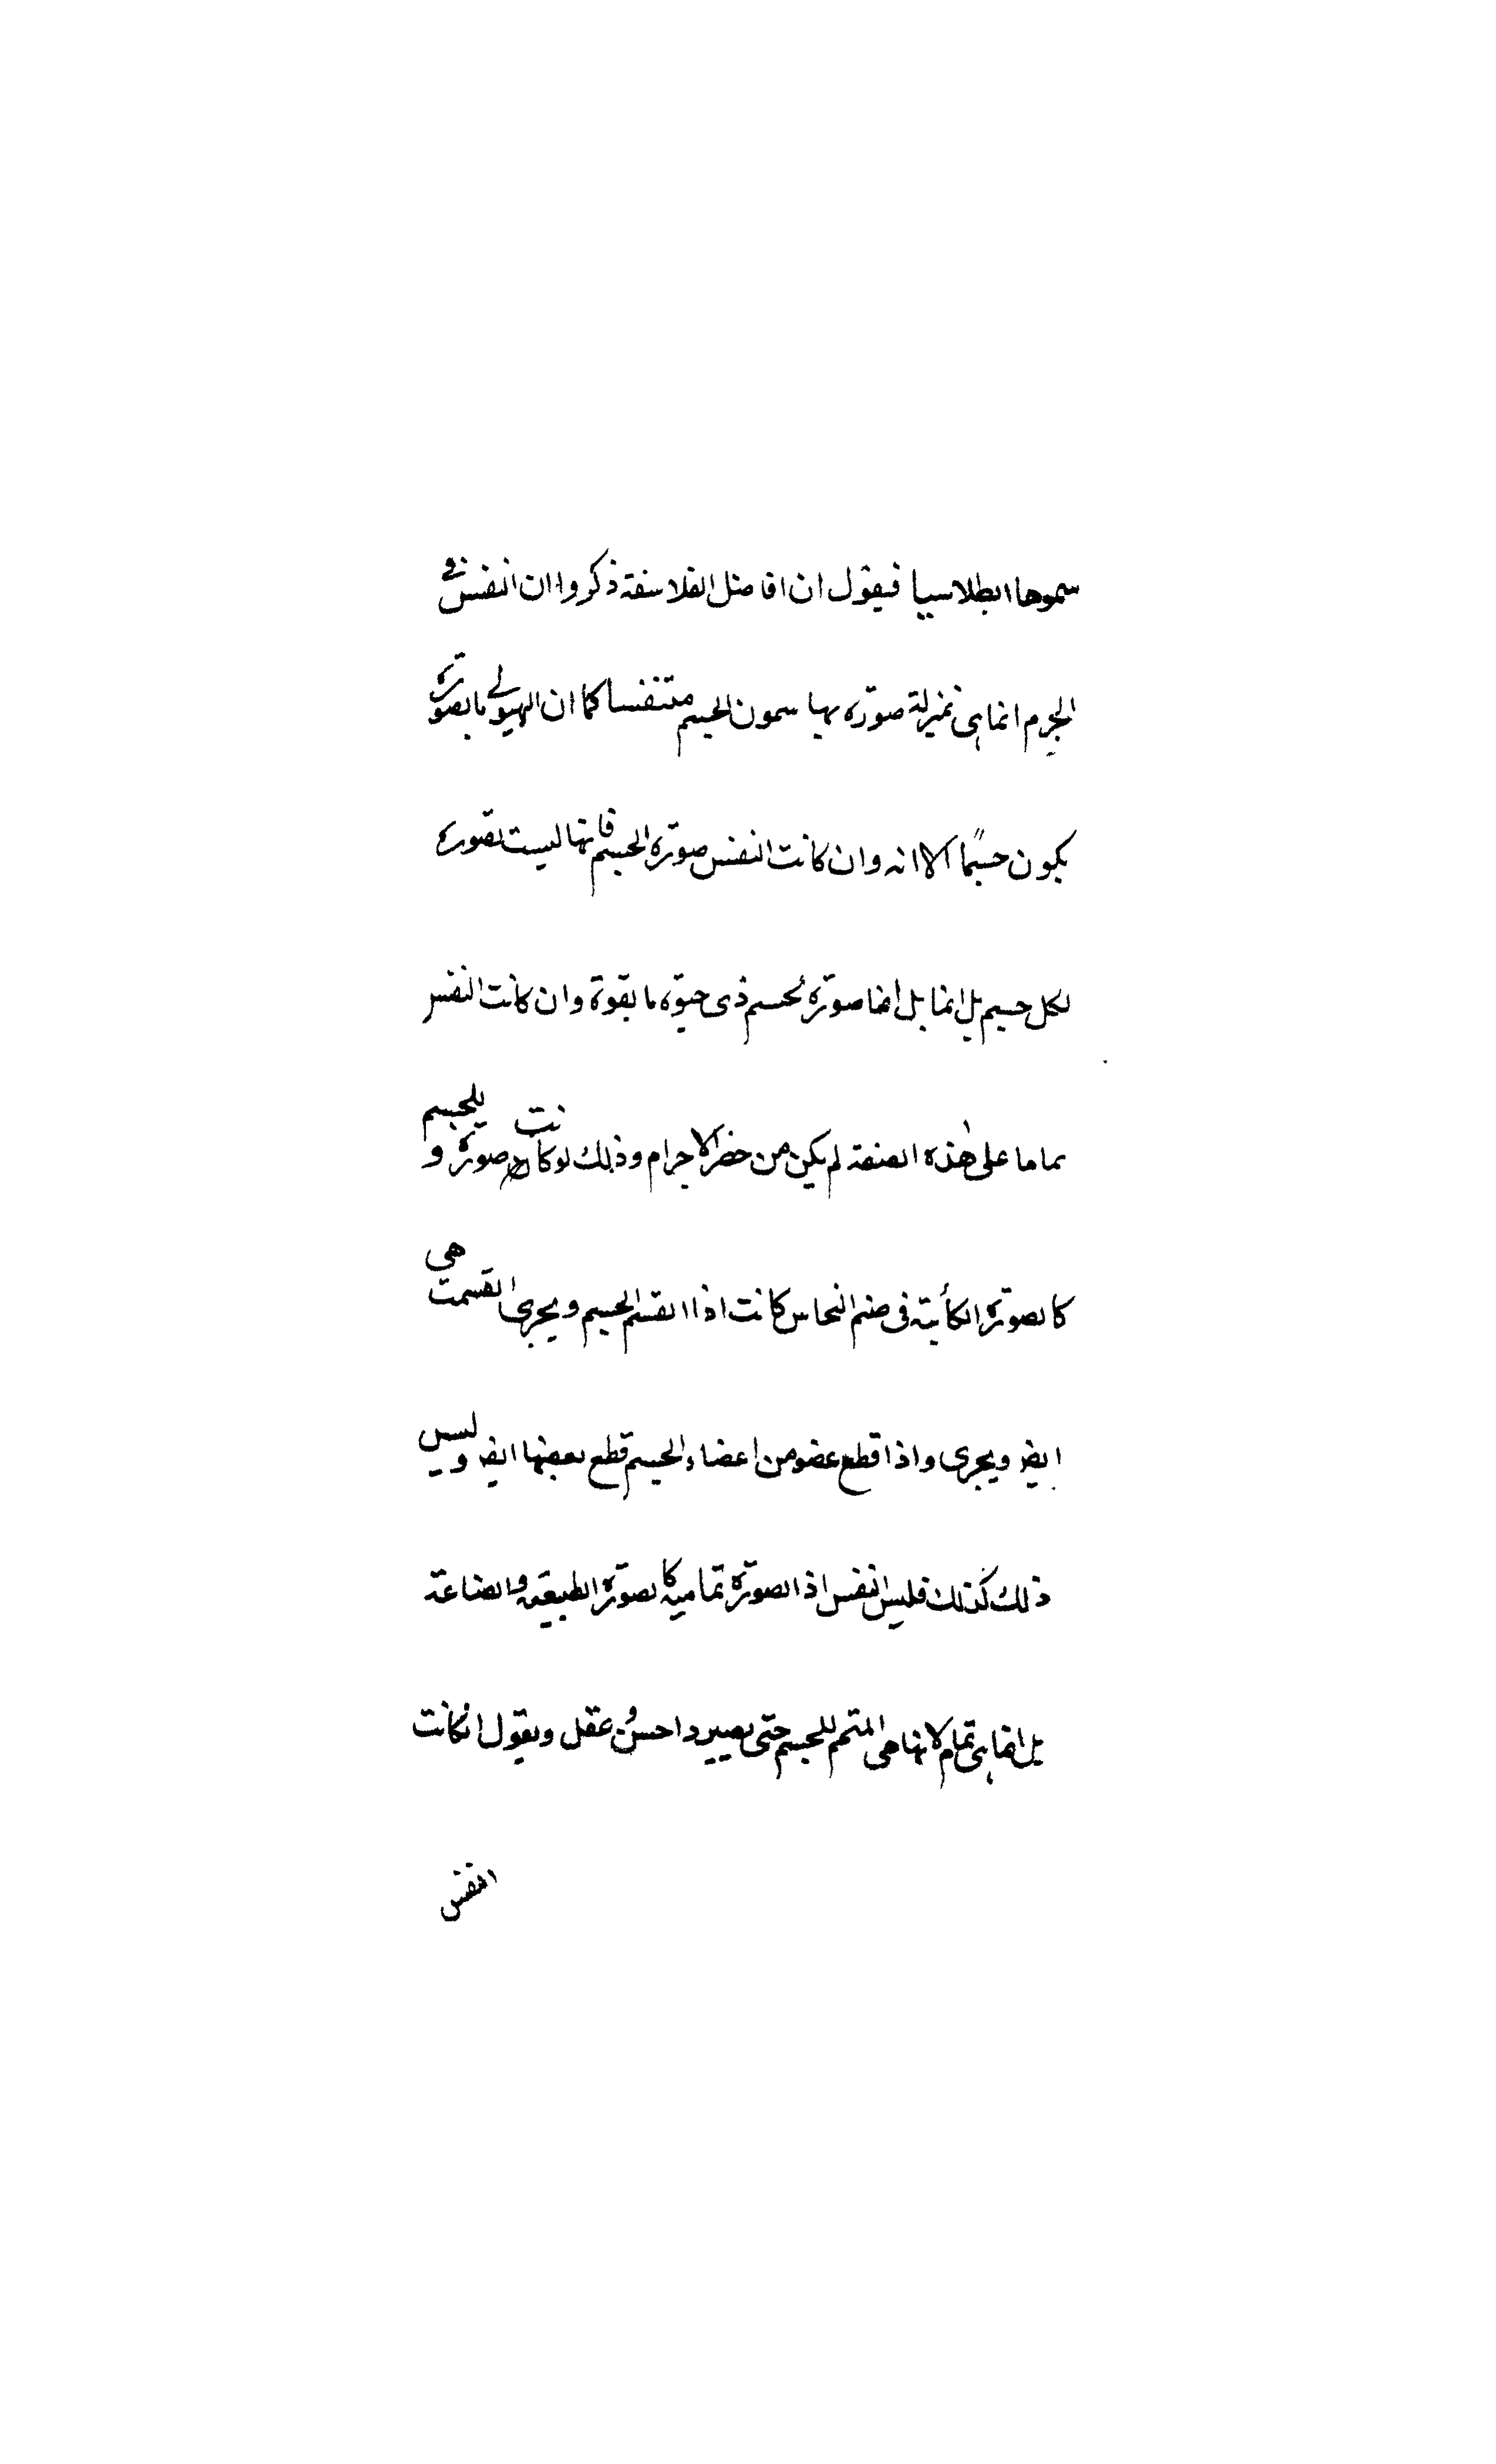 سموها انطلاسيا فيقول ان افاضل الفلاسفة ذكروا ان النفس في
الجرم انما هى بمنزلة صورة بها يسمون الجسم متنفسا كما ان الهيولى بالصورة
يكون جسمًا الا انه وان كانت النفس صورة الجسم فانها ليست بصورة
لكل جسم بل انما بل انما صورة لجسم ذى حيوة بالقوة وان كانت النفس
تماما على هذه الصفة لم يكن من حيز الاجرام وذلك لو كانت صورة للجسم و
كالصورة الكائنة فى صنم النحاس كانت اذا انقسم الجسم ويجزى انقسمت هى
ايض ويجزى واذا قطع عضو من اعضاء الجسم قطع بعضها ايض وليس
ذلك كذلك فليس النفس اذا لصورة تمامية كالصورة الطبيعية والصناعة
بل انما هى تمام لانها هى المتمم للجسم حتى يصير ذا حس و عقل ويقول ان كانت
النفس